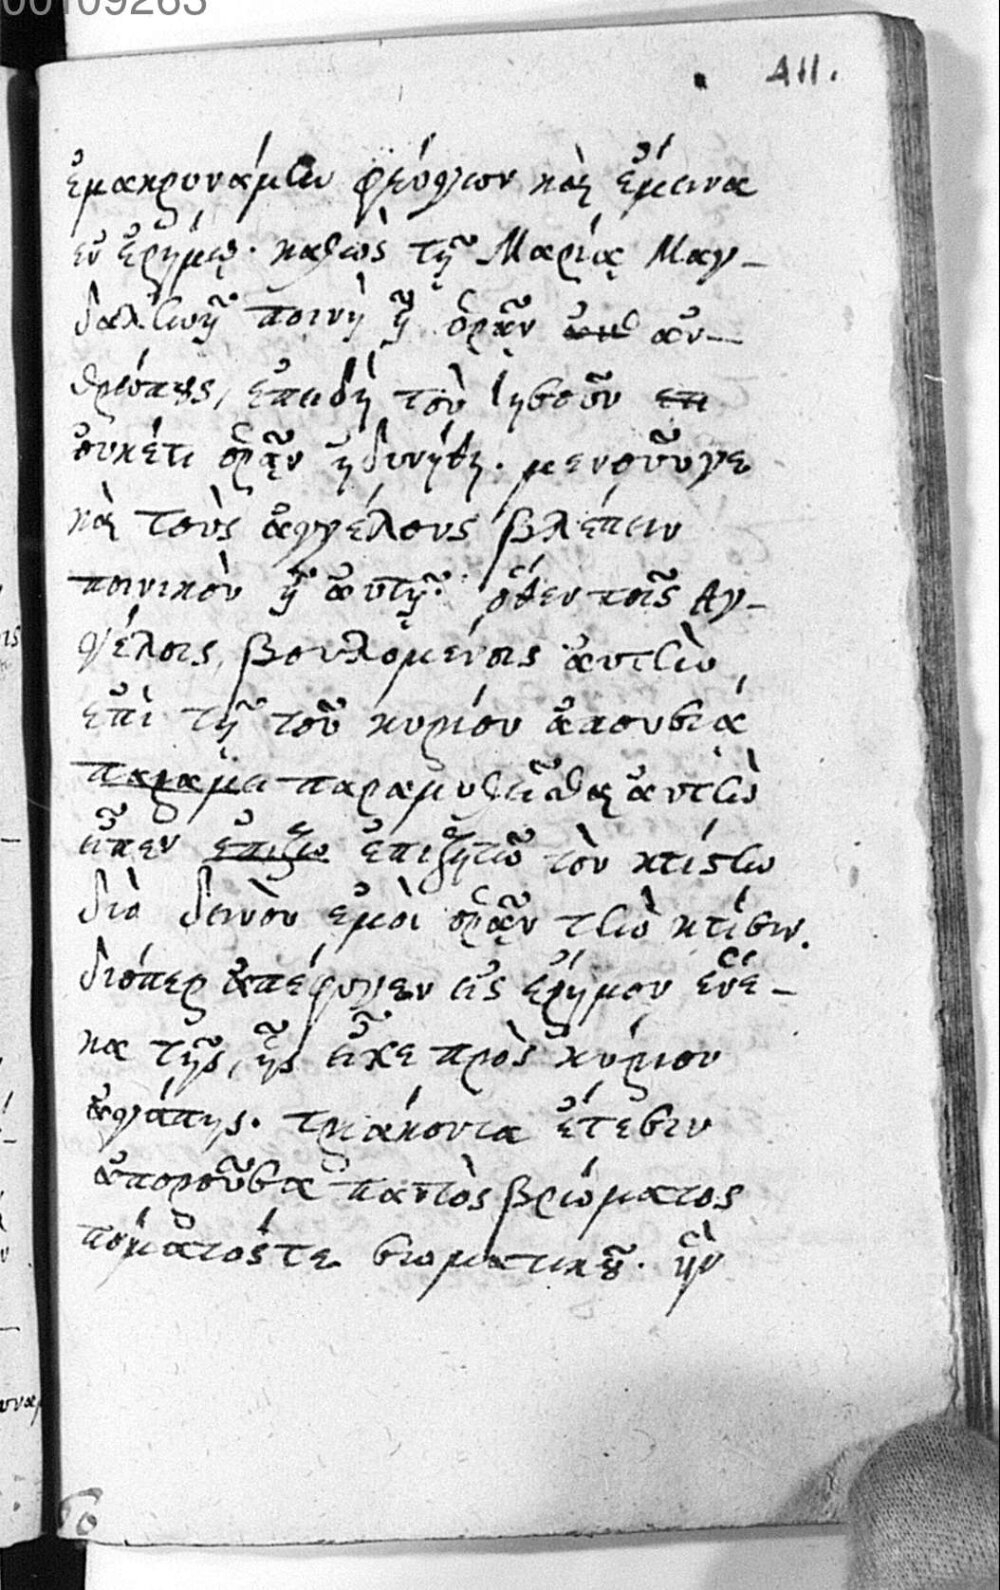 00109263
411.
ἐμακρυνάμην φεύγων καὶ ἔμεινα
ἐν ἐρήμῳ. καθὼς τῇ Μαρίᾳ Μαγ-
δαληνῇ ποινὴ ἦ ὁρᾶν ἀνθ ἀν-
θρώπους, ἐπειδὴ τὸν Ἰησοῦν επι
οὐκέτι ὁρᾶν ἠδυνήθη. μενοῦνγε
καὶ τοὺς ἀγγέλους βλέπειν
ποινικὸν ἦ αὐτῇ. ὅθεν τοῖς Ἀγ-
γέλοις, βουλομένοις αὐτὴν,
ἐπὶ τῇ τοῦ κυρίου ἀπουσίᾳ
παραμε παραμυθεῖσθαι αὐτὴν
εἶπεν ἐπιζη ἐπιζητῶ τὸν κτίστην
διὸ δεινὸν ἐμοὶ ὁρᾶν τὴν κτίσιν.
διόπερ ἀπέφυγεν εἰς ἔρημον ἕνε-
κα τῆς, ἧς εἶχε πρὸς κύριον
ἀγάπης. τριάκοντα ἔτεσιν
ἀποροῦσα παντὸς βρώματος
πόματός τε σωματικοῦ. ἣν